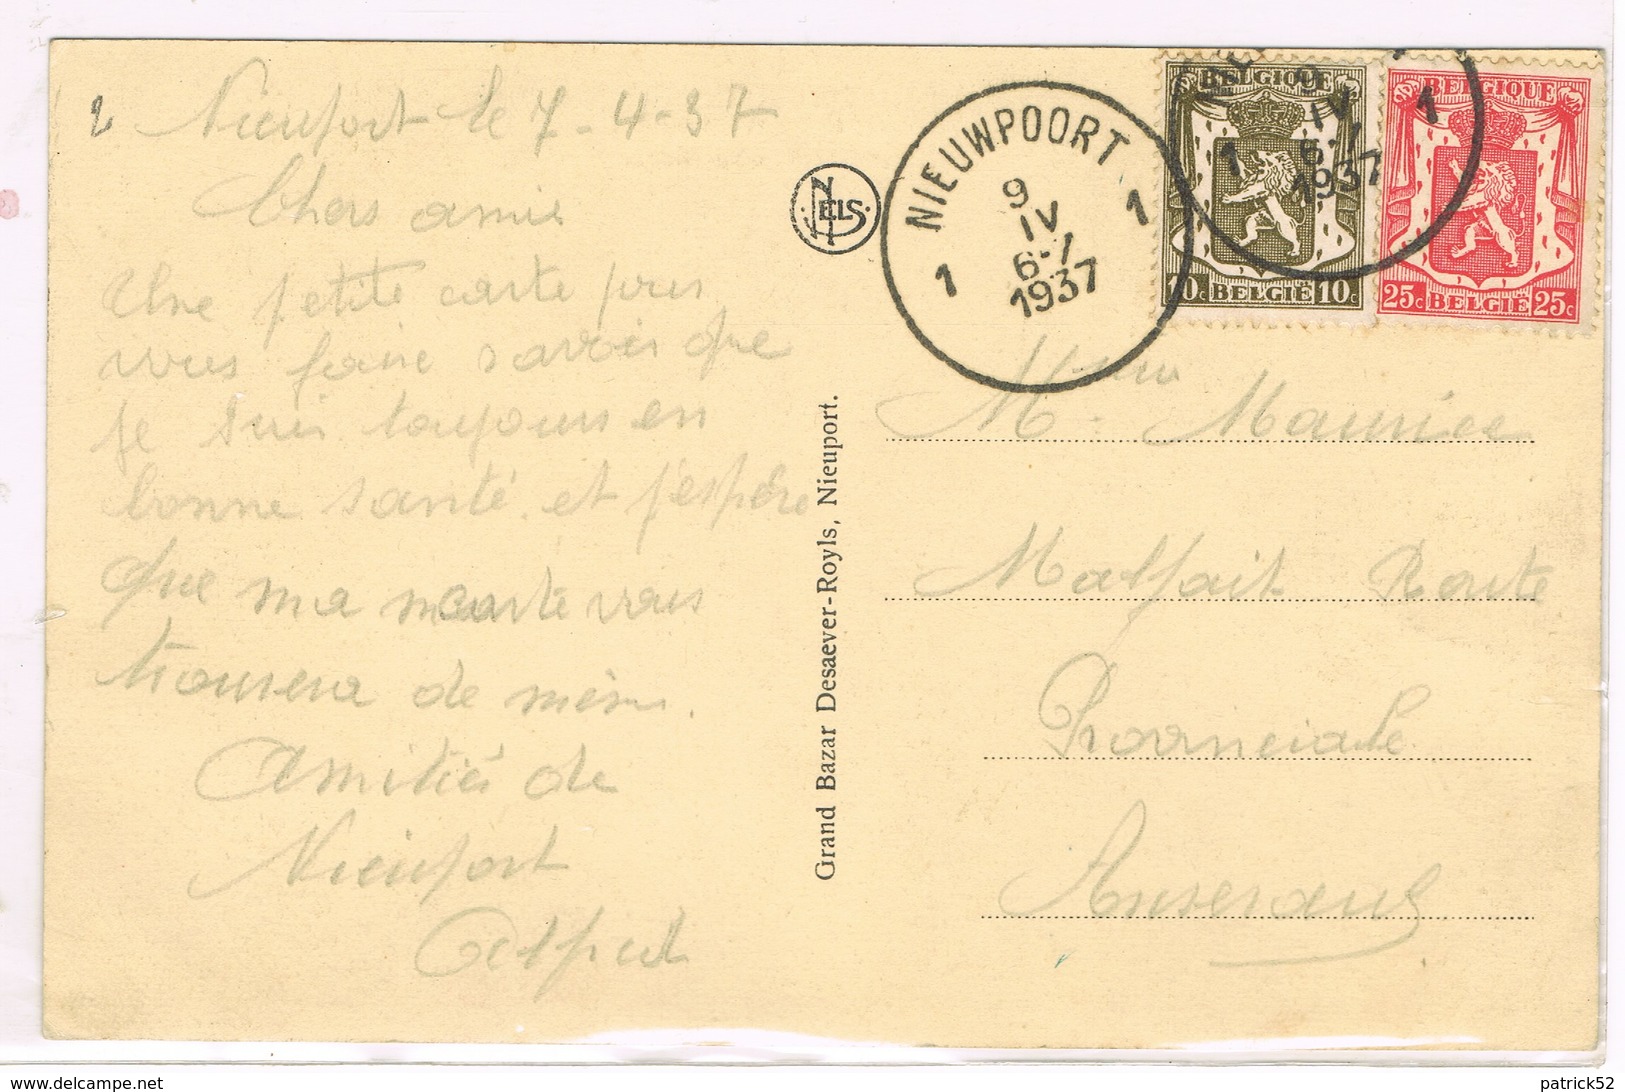 2 Nieuport le 7-4-37
Chers amie
Une petite carte pour
vous faire savoir que
je suis toujours en
bonne santé et j'espère
que ma carte vous
trouvera de même.
Amitiés de
Nieuport
NELS
Grand Bazar Desaever-Royls, Nieuport.
NIEUWPOORT
1 1
9
IV
6-7
1937
BELGIQUE
10c BELGIË 10c
BELGIQUE
25c BELGIË 25c
1 1
9
IV
6-7
1937
Maurice
Malfait Route
Provinciale
Anseroeul
delcampe.net
patrick52